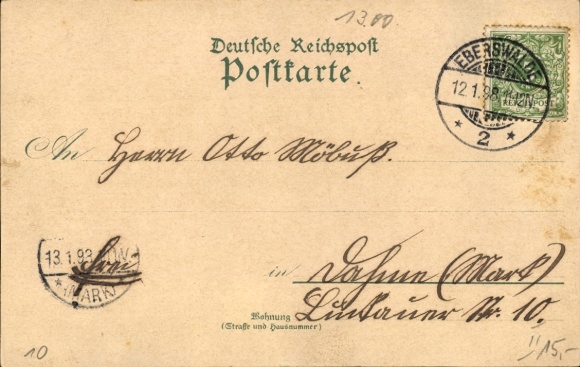 13.00
Deutsche Reichspost
Postkarte.
EBERSWALDE
12.1.98
* 2 *
REICHSPOST
An Herrn Otto Möbuß.
13.1.93
(MARK)
in Dahme (Mark)
Luckauer Str. 10.
Wohnung
(Straße und Hausnummer)
10
15,-